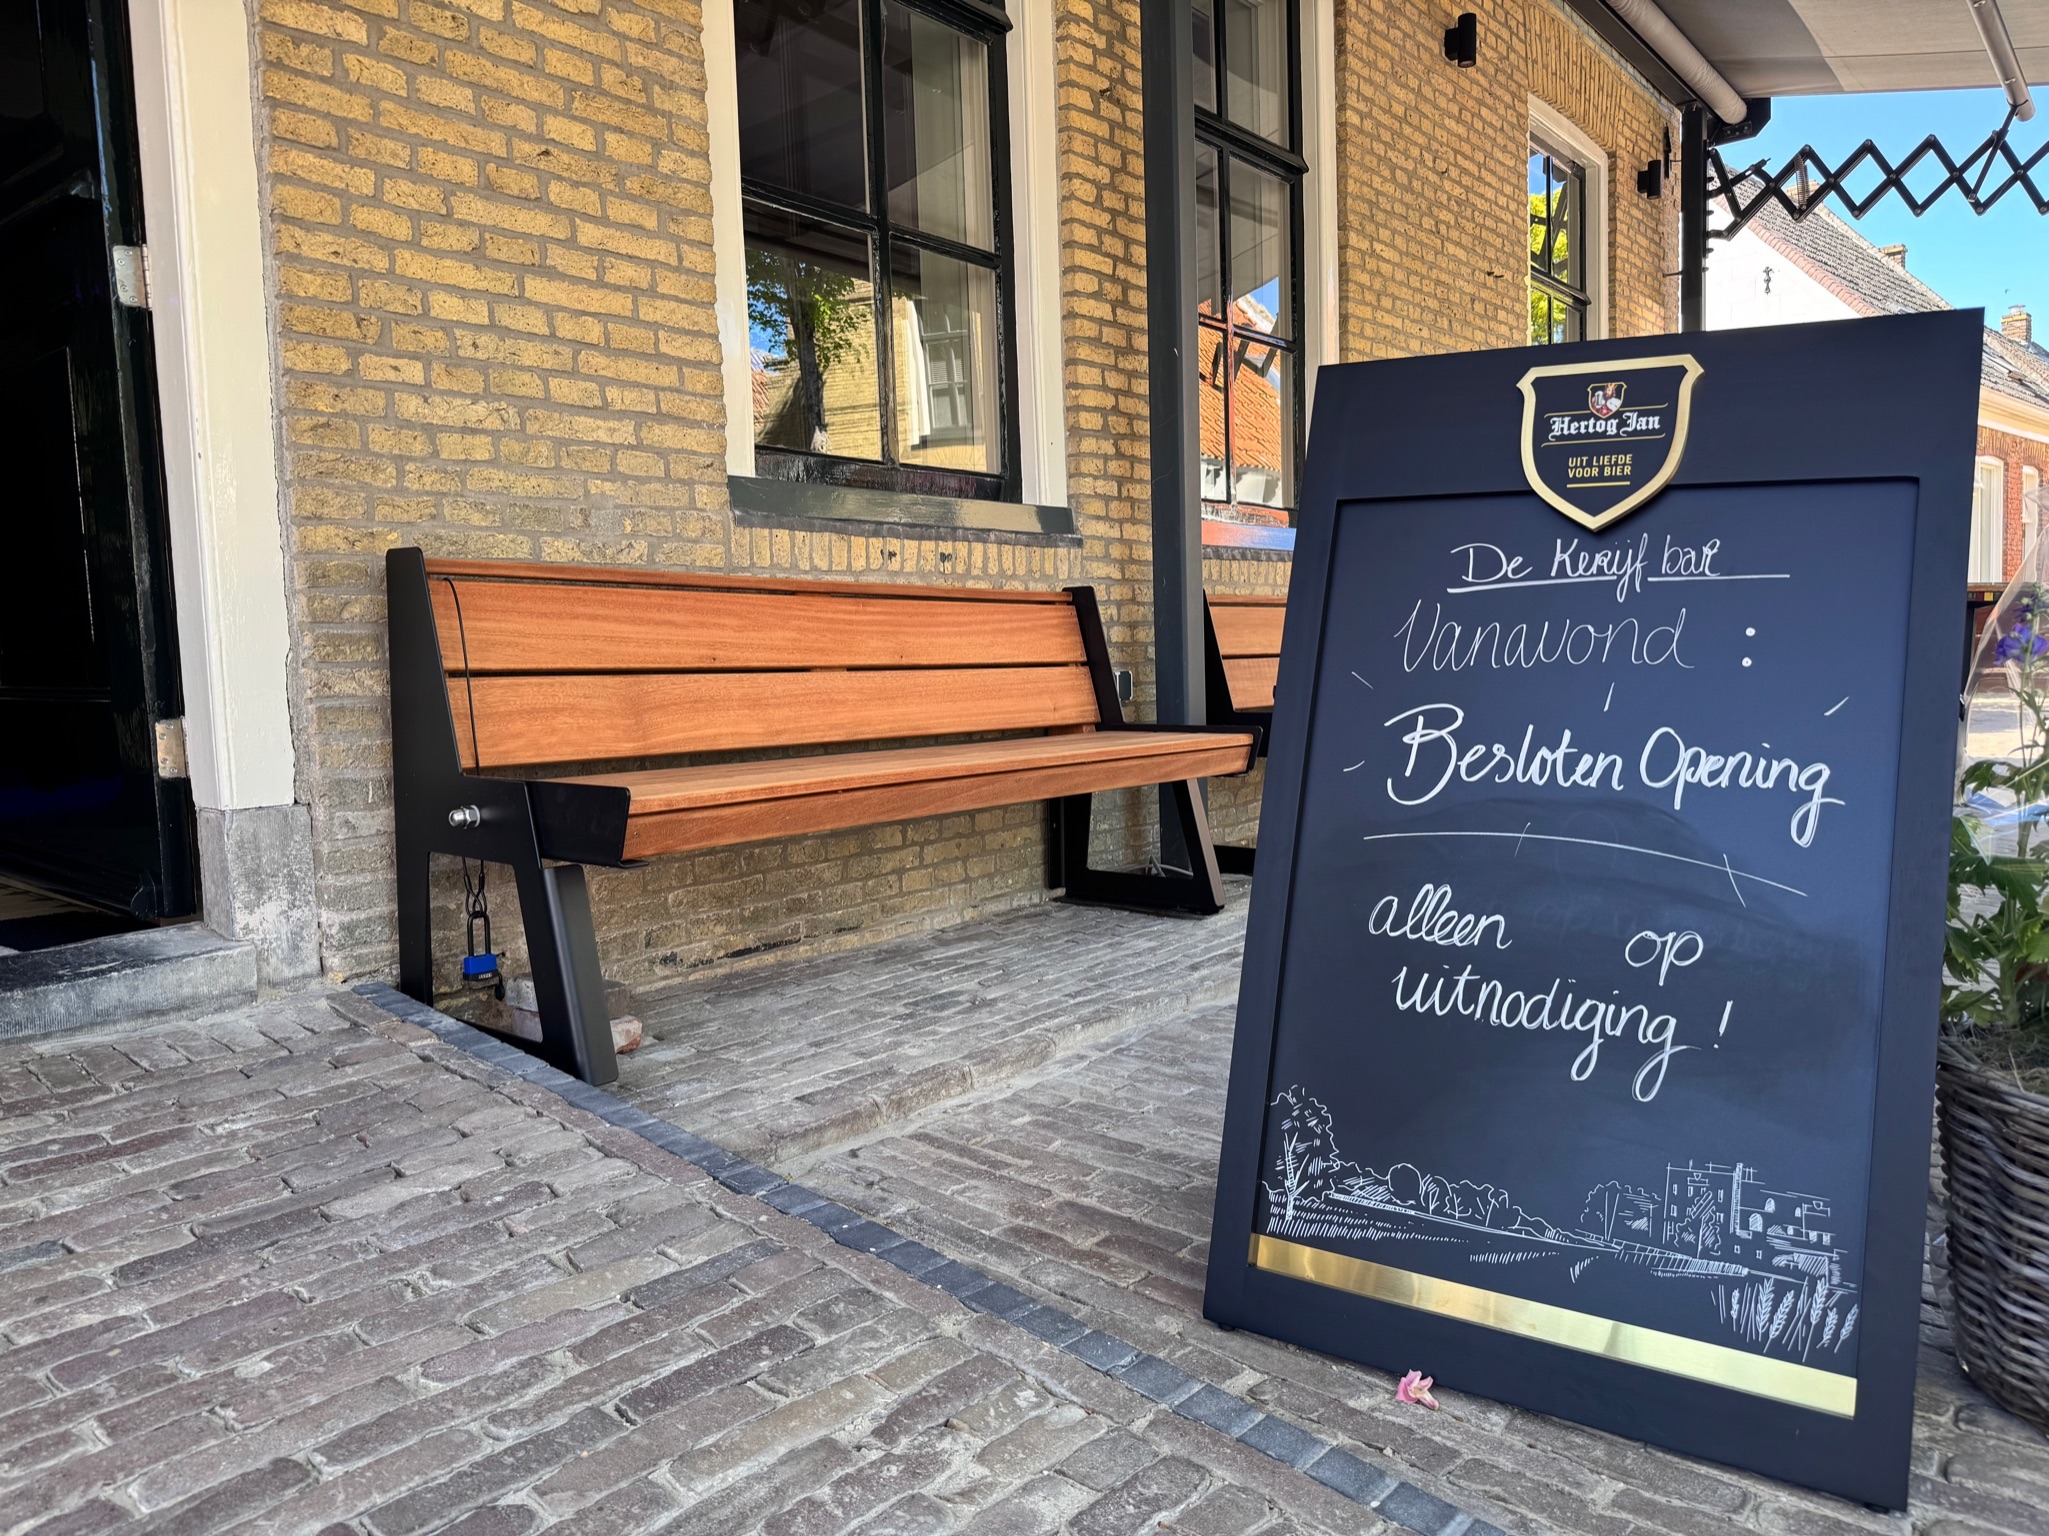 Hertog Jan
UIT LIEFDE
VOOR BIER
De Kerijf bar
Vanavond :
Besloten Opening
alleen op
uitnodiging !